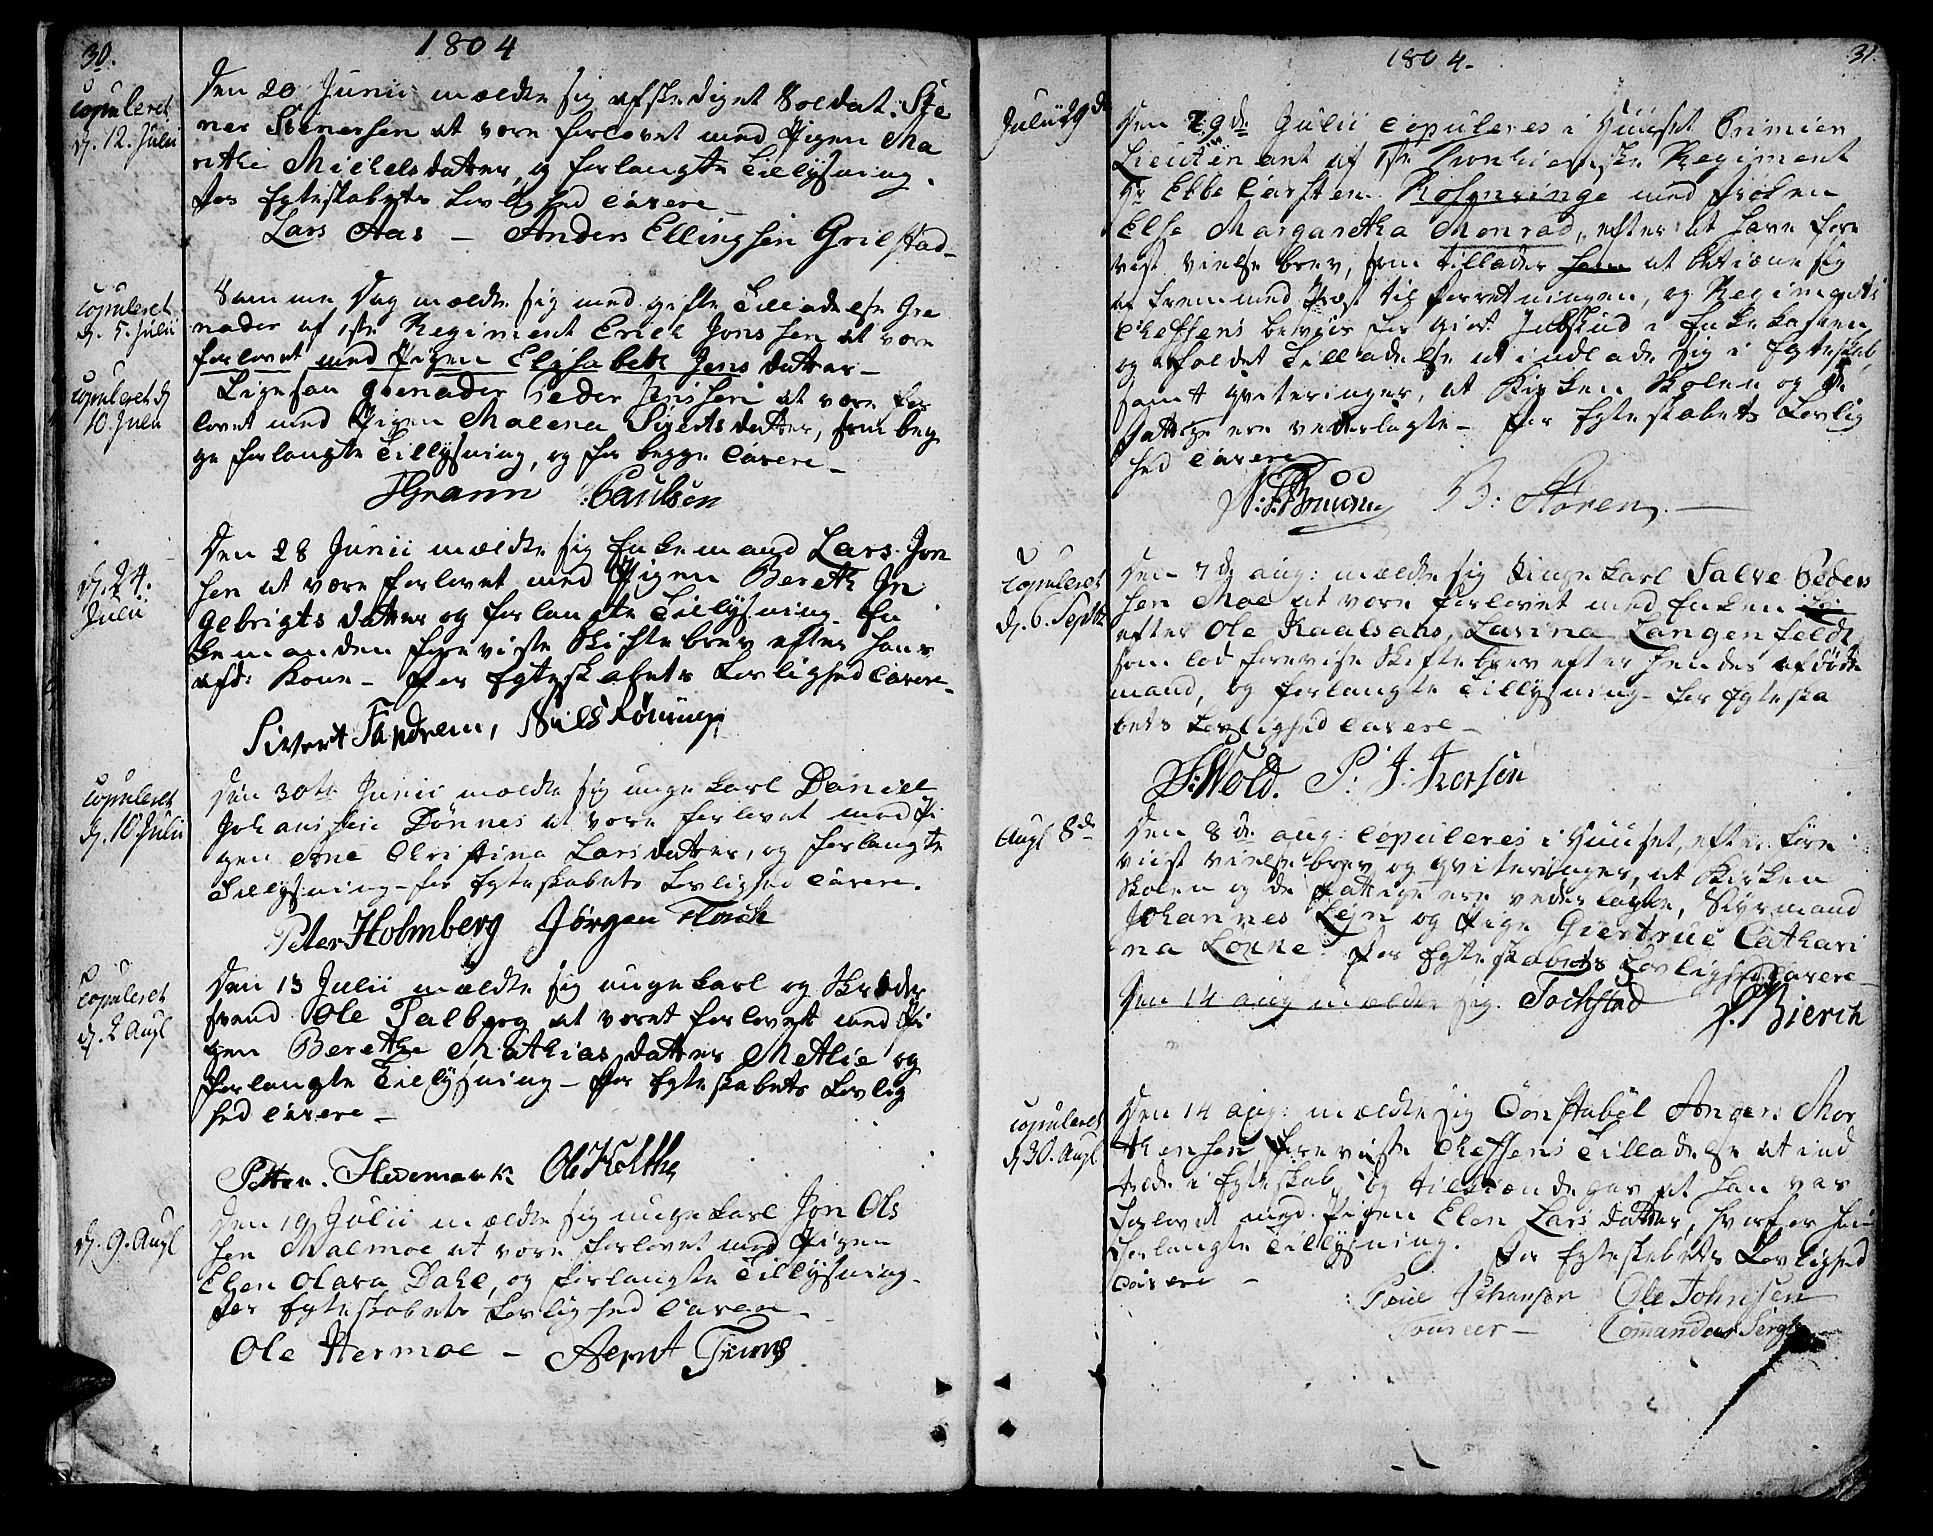 30.
1804
copuleret
d. 12. Julii
Den 20 Junii mældte sig afskediget Soldat Ste
ner Stenersen at være forlovet med Pigen Ma
rithe Michelsdatter, og forlangte Tillysning.
for Egteskabets Lovlighed Cavere
Lars Aas – Anders Ellingsen Grilstad
copuleret
d. 5. Julii
Samme Dag mældte sig med gifte Tilladelse Gre
nader af 1ste Regiment Erich Jonsen at være
forlovet med Pigen Elisabeth Jensdatter –
copuleret d
10 Julii
Ligesaa Grenader Peder Jensen at være for
lovet med Pigen Malena Sivertsdatter, som beg
ge forlangte Tillysning, og for begge Cavere –
HGramm Paulsen
d. 24.
Julii
Den 28 Junii mældte sig Enkemand Lars Jon
sen at være forlovet med Pigen Bereth In
gebrigtsdatter og forlangte Tillysning. En
kemanden foreviste Skiftebrev efter hans
afd: Kone – for Egteskabets Lovlighed Cavere –
Sivert Fandrem, Nils Rønning
copuleret
d. 10 Julii
Den 30te Junii mældte sig unge karl Daniel
Johansen Dønnes at være forlovet med Pi
gen Ane Christina Larsdatter, og forlangte
Tillysning – for Egteskabets Lovlighed Cavere.
Peter Holmberg Jørgen Floch
copuleret
d. 2 Augl
Den 13 Julii mældte sig unge karl og Skræder
svend Ole Talberg at været forlovett med Pi
gen Berethe Mathiasdatter Metlie og
forlangte Tillysning – for Egteskabets Lovlig
hed Cavere –
Petter Hedemark Ole Holthe
d. 9. Augl
Den 19 Julii mældte sig unge karl Jon Ols
sen Malmoe at være forlovet med Pigen
Elen Olava Dahl, og forlangte Tillysning –
for Egteskabets Lovlighed Caveren –
Ole Hermoe – Arnt
31
1804 –
Julii 29de
Den 29de Julii copuleres i Huuset Primier
Lieutenant af 1ste Tronhiemske Regiment
Hr Ebbe Carsten Rosenvinge med Frøken
Else Margaretha Monrad, efter at have fore
vist vielse brev, som tillader ham at betiene sig
af fremmed Præst til forretningen, og Regiments
Cheffens beviis for giort Indskud i Enkekassen
og erholdet Tilladelse at indlade sig i Egteskab,
samt qviteringer, at Kirken Skolen og de
Fattige ere vederlagte – for Egteskabets Lovlig
hed Cavere
N. F. Bruun B: Støren –
copuleret
d. 6. Septbr
Den 7de aug: mældte sig Unge karl Salve Peder
sen Moe at være forlovet med Enken
efter Ole Kaalsaas, Larina Langenfeldt,
som lod forevise Skiftebrev efter hendes afdøde
mand, og forlangte Tillysning – for Egteska
bets Lovlighed Cavere –
S. Wold. P. J. Thorsen
Augl 8de
Den 8de aug: copuleres i Huuset, efter fore
viist vielse brev og qviteringer, at Kirken
Skolen og de Fattige ere vederlagte, Styrmand
Johannes Lejn og Pige Giertrue Cathari
na Lonne for Egteskabets Lovlighed Cavere –
Den 14 aug mældte sig. Tochstad P. Bierch
copuleret
d 30. Augl
Den 14 aug: mældte sig Constabel Anders Mor
thensen foreviste Cheffens Tilladelse at ind
træde i Egteskab og tilkiændegav at han var
forlovet med Pigen Elen Larsdatter, hvorfor han
forlangte Tillysning. for Egteskabets Lovlighed
Cavere –
Poul Johansen Ole Johnsen
Foureer – Comandeer Sergt